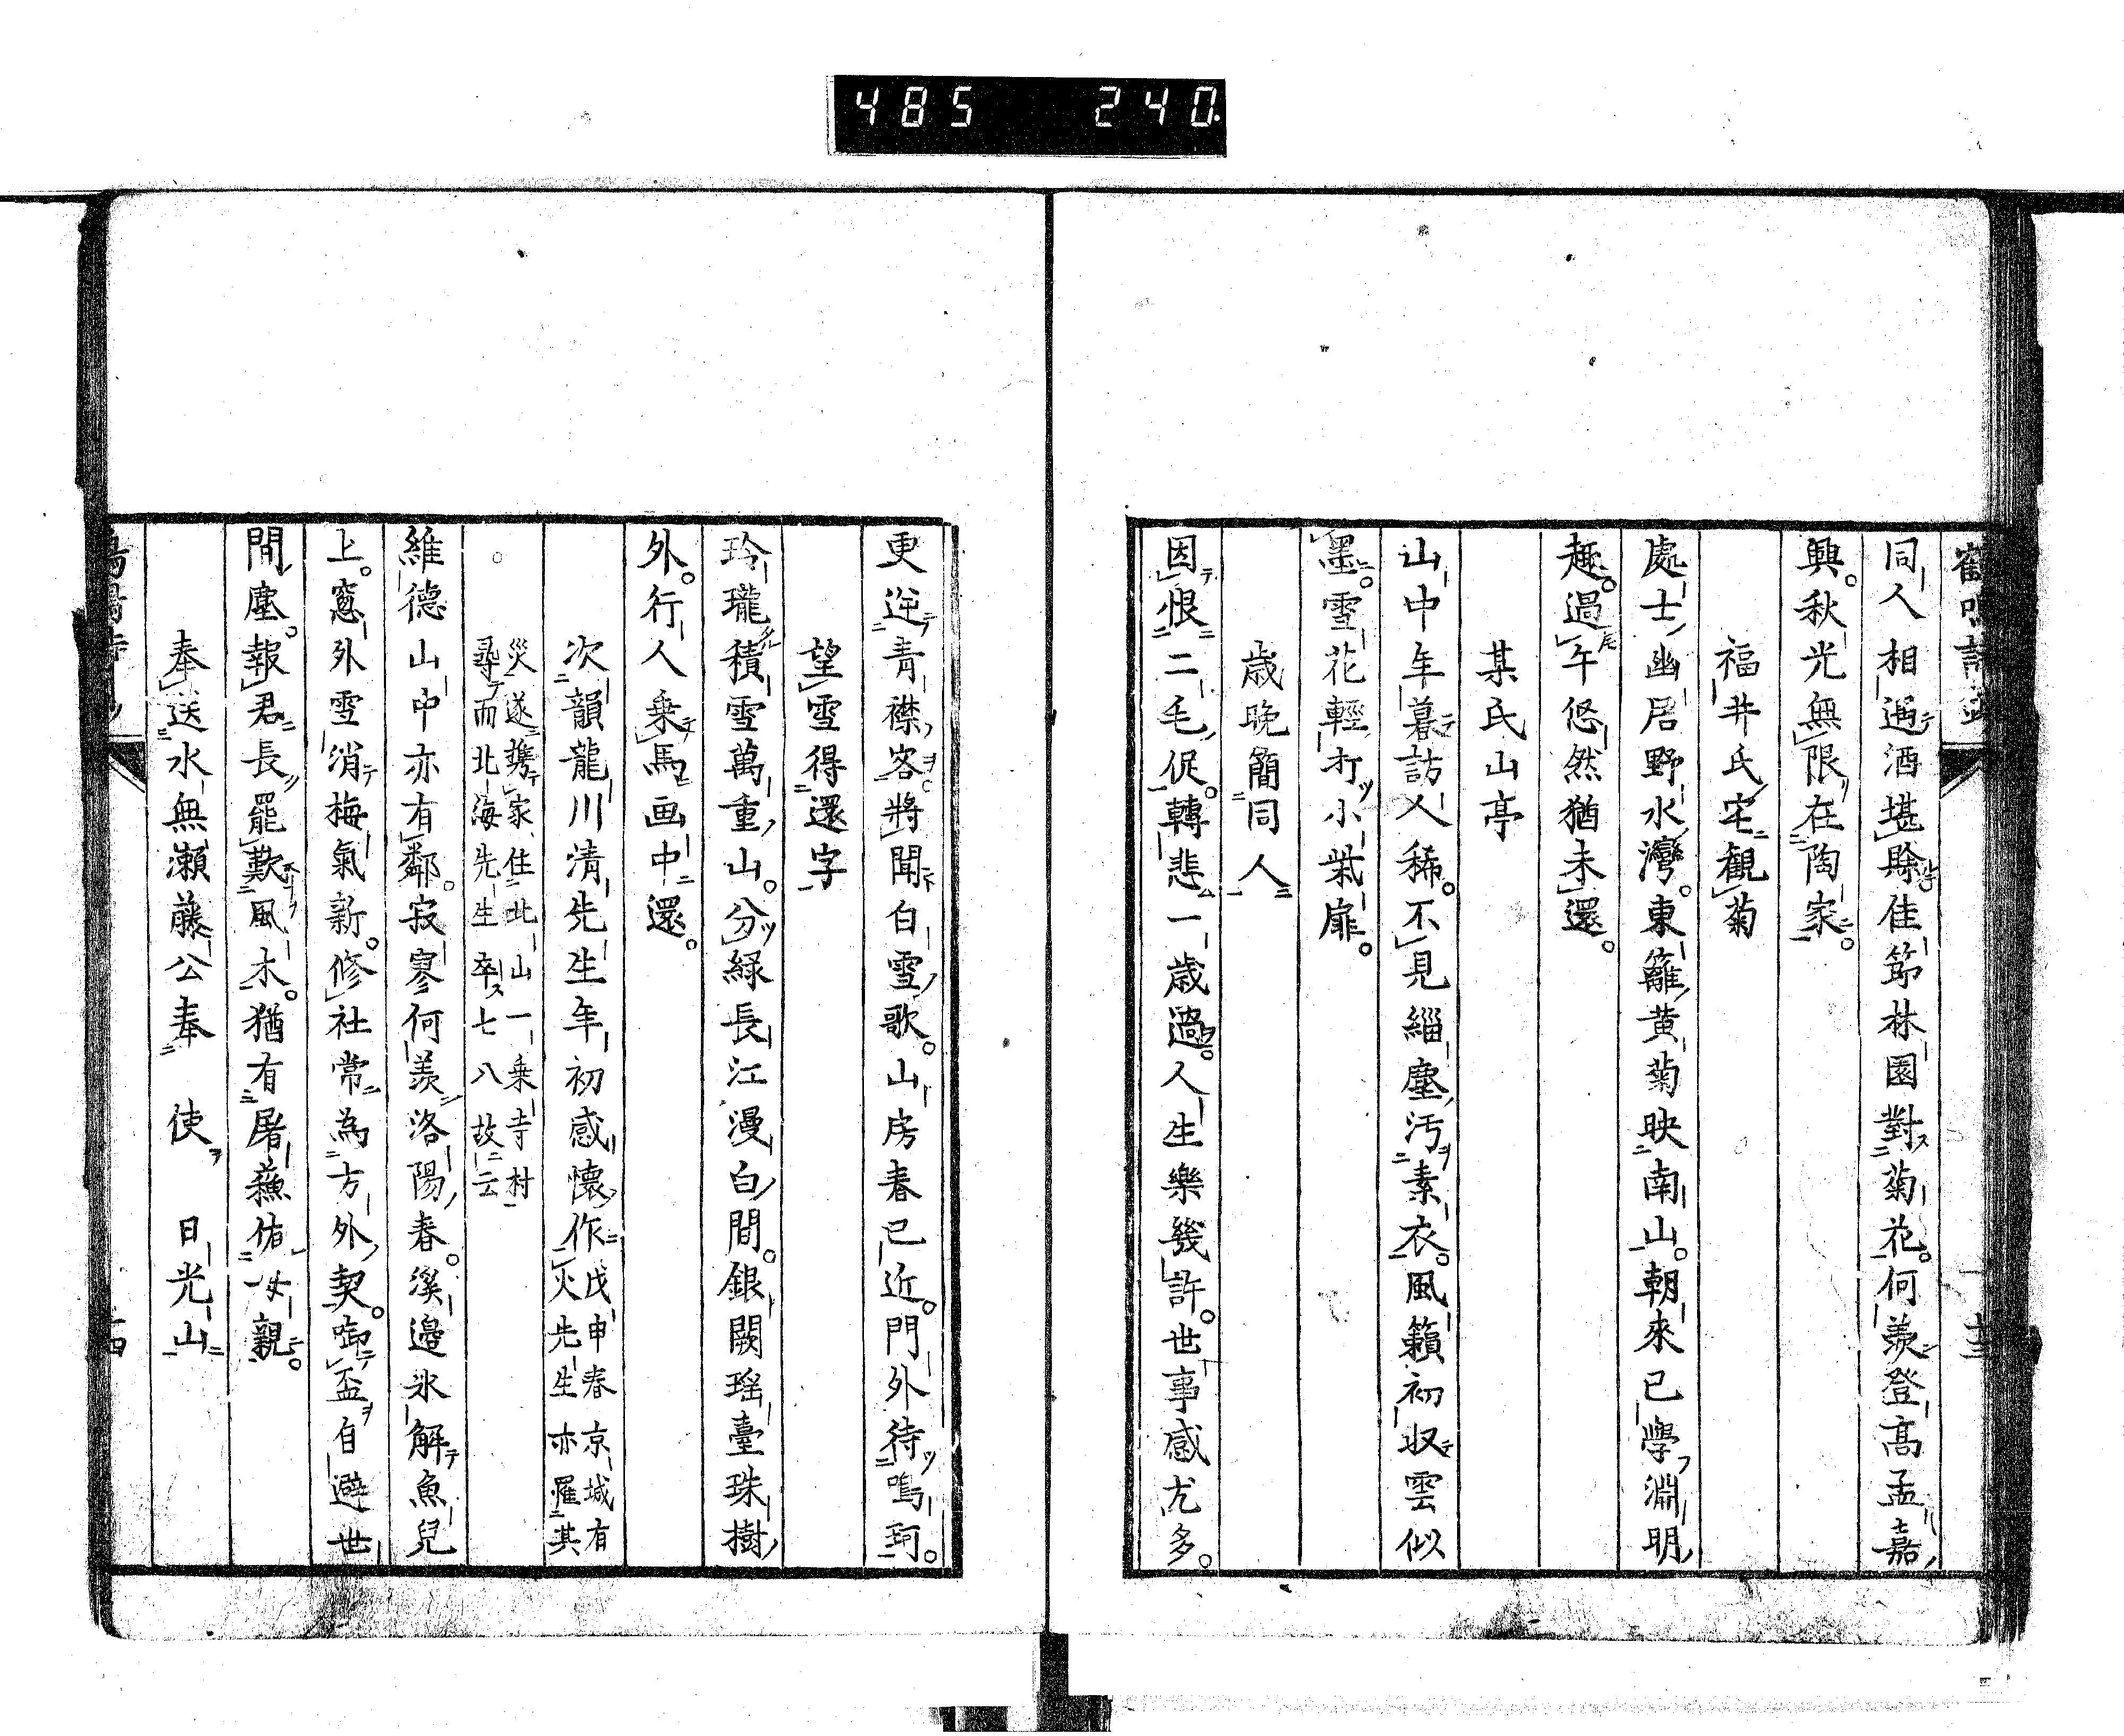 485 240.
同人相遇酒堪賖佳節林園對菊花。何羨登高孟嘉
興。秋光無限在陶家。
福井氏宅觀菊
處士幽居野水灣。東籬黄菊映南山。朝來已學淵明
趣。過午悠然猶未還。
某氏山亭
山中年暮訪人稀。不見緇塵汚素衣。風籟初収雲似
墨。雪花輕打小柴扉。
歳晩簡同人
因恨二毛促。轉悲一歳過。人生樂幾許。世事感尤多。
更逆青襟客。將聞白雪歌。山房春已近。門外待鳴珂。
望雪得還字
玲瓏積雪萬重山。分緑長江漫白間。銀闕瑶臺珠樹
外。行人乗馬画中還。
次韻龍川清先生年初感懷作 戊申春京城有火先生亦罹其
災遂携家住北山一乗寺村尋而北海先生卒七八故云
維德山中亦有鄰。寂寥何羨洛陽春。溪邊氷解魚兒
上。窓外雪消梅氣新。修社常為方外契。啣盃自避世
間塵。報君長罷歎風木。猶有屠蘓佑母親。
奉送水無瀬藤公奉 使日光山